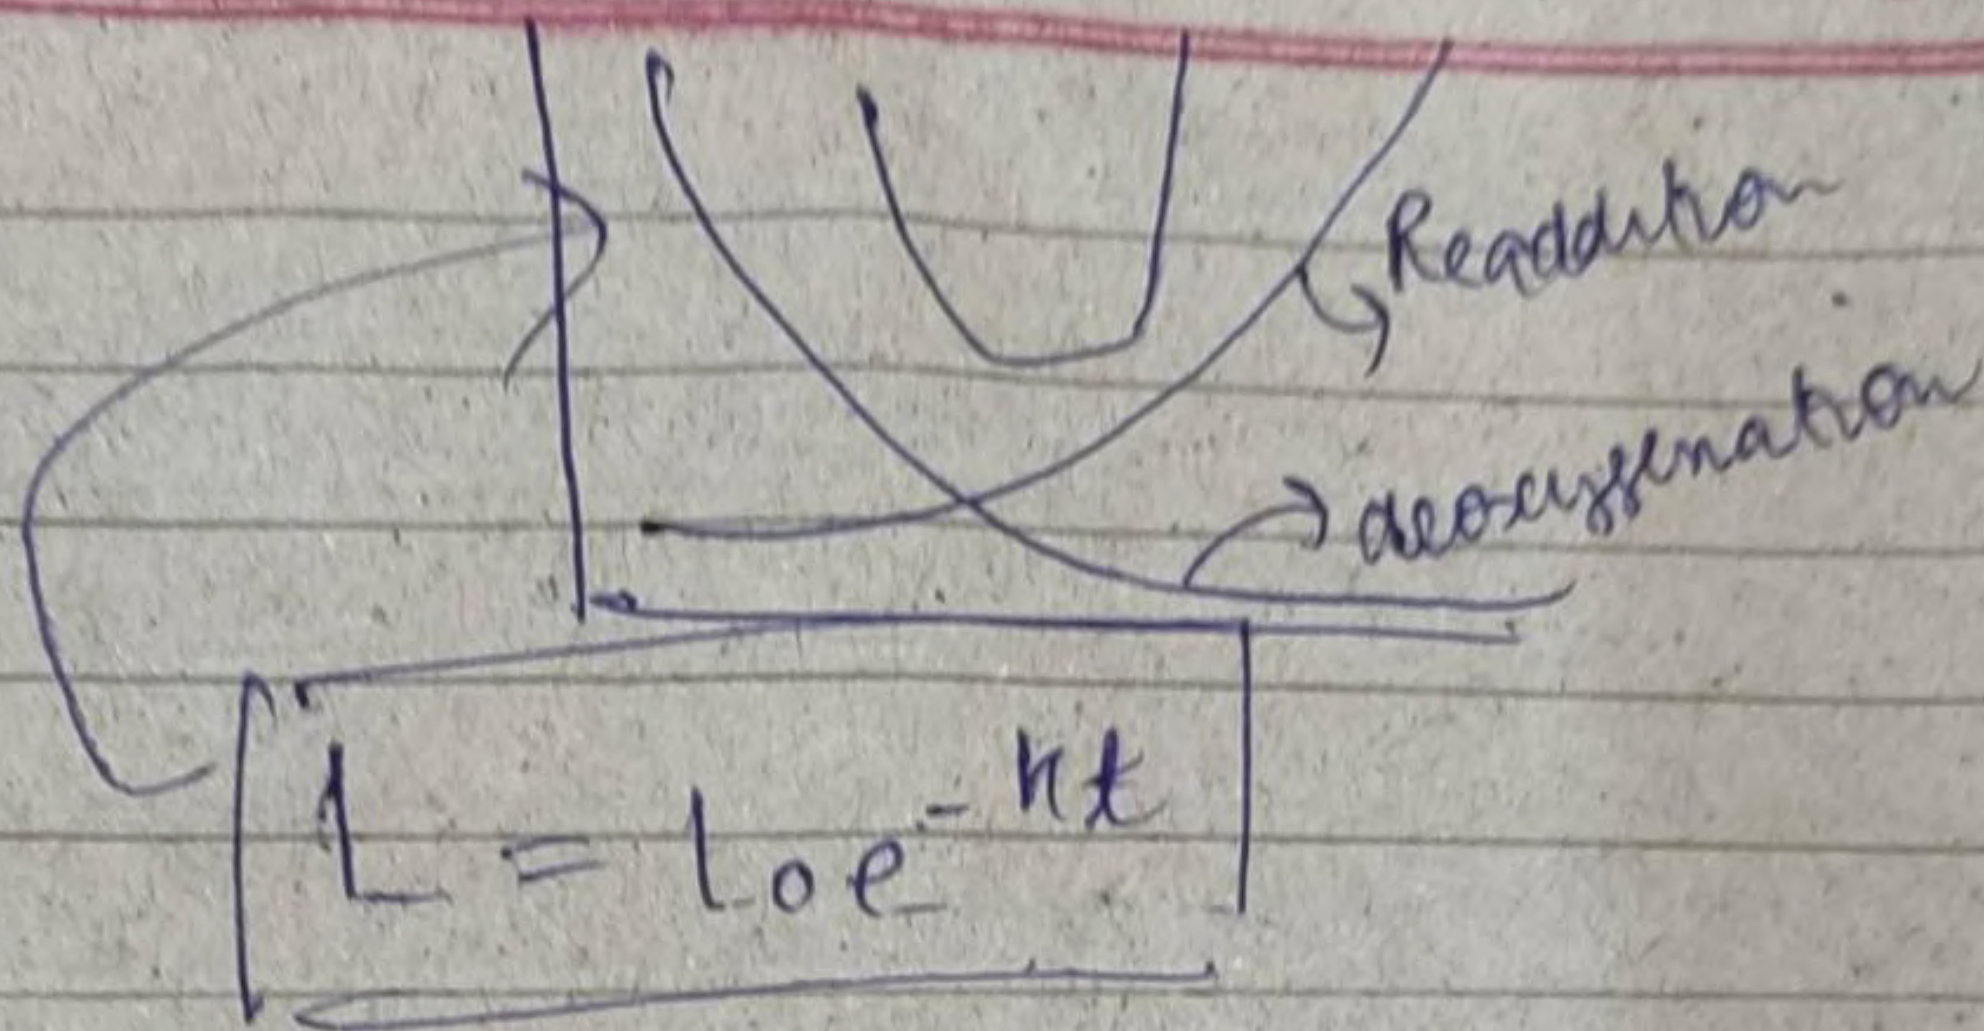 Readdition
deoxygenation
L = L₀e^{-kt}